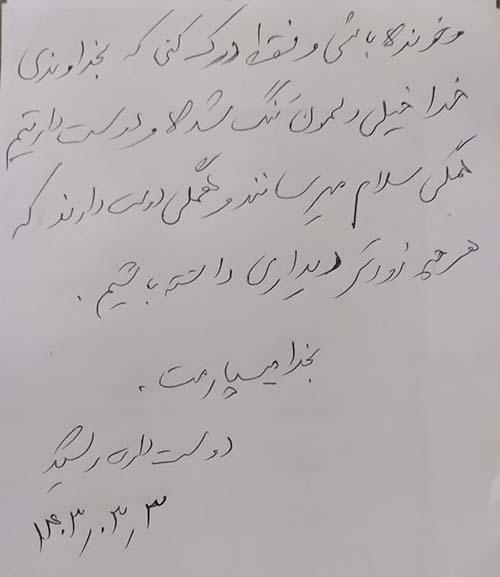 و خونده باشی و فقط درک کنی که بخداوندی
خدا خیلی دلمون تنگ شده و دوست داریم
همگی سلام میرسانند و همگی دوست دارند که
هر چه زودتر دیداری داشته باشیم .
بخدا میسپارمت .
دوست دارت رشید
۱۴۰۳٫۰۳٫۳